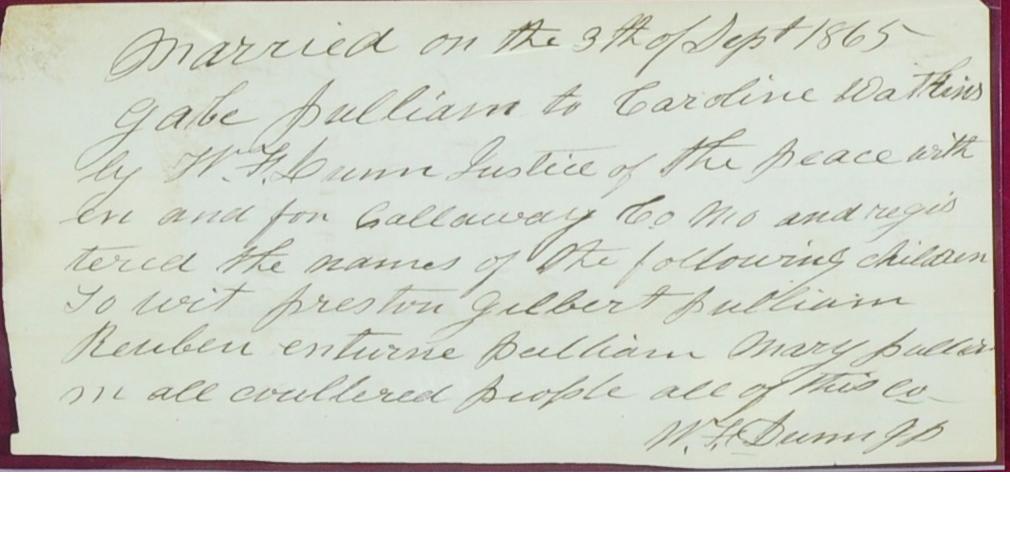 Married on the 3th of Sept 1865
Gabe pulliam to Caroline Watkins
by W. H. Dunn Justice of the peace with
en and for Callaway Co Mo and regis
tered the names of the following children
To wit preston Gilbert pulliam
Reuben enturne pulliam Mary pullia
m all coullered people all of this co
W. H. Dunn J P